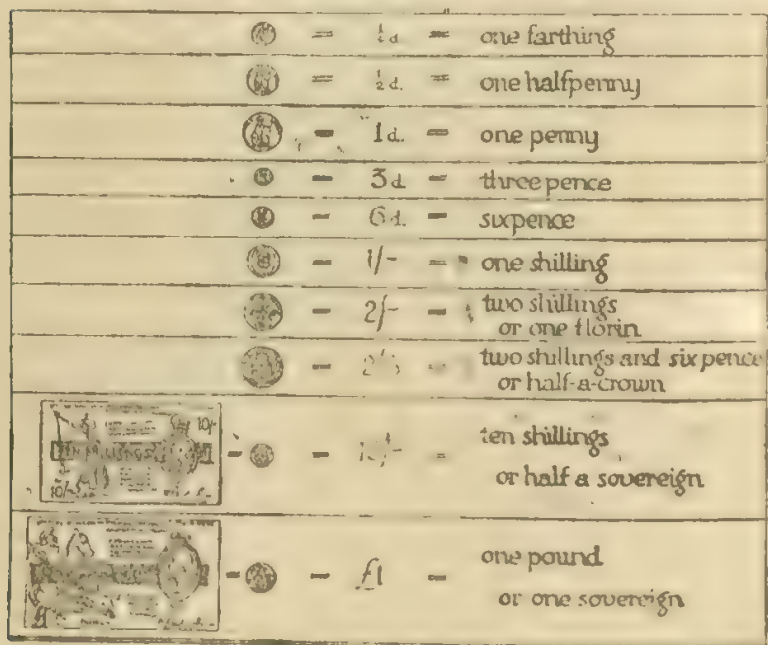 = ¼d = one farthing
= ½d. = one halfpenny
= 1d = one penny
= 3d = three pence
= 6d. = sixpence
= 1/- = one shilling
= 2/- = two shillings
or one florin
= = two shillings and sixpence
or half-a-crown
10/-
10/-
= = 10/- = ten shillings
or half a sovereign
£1
= = £1 = one pound
or one sovereign